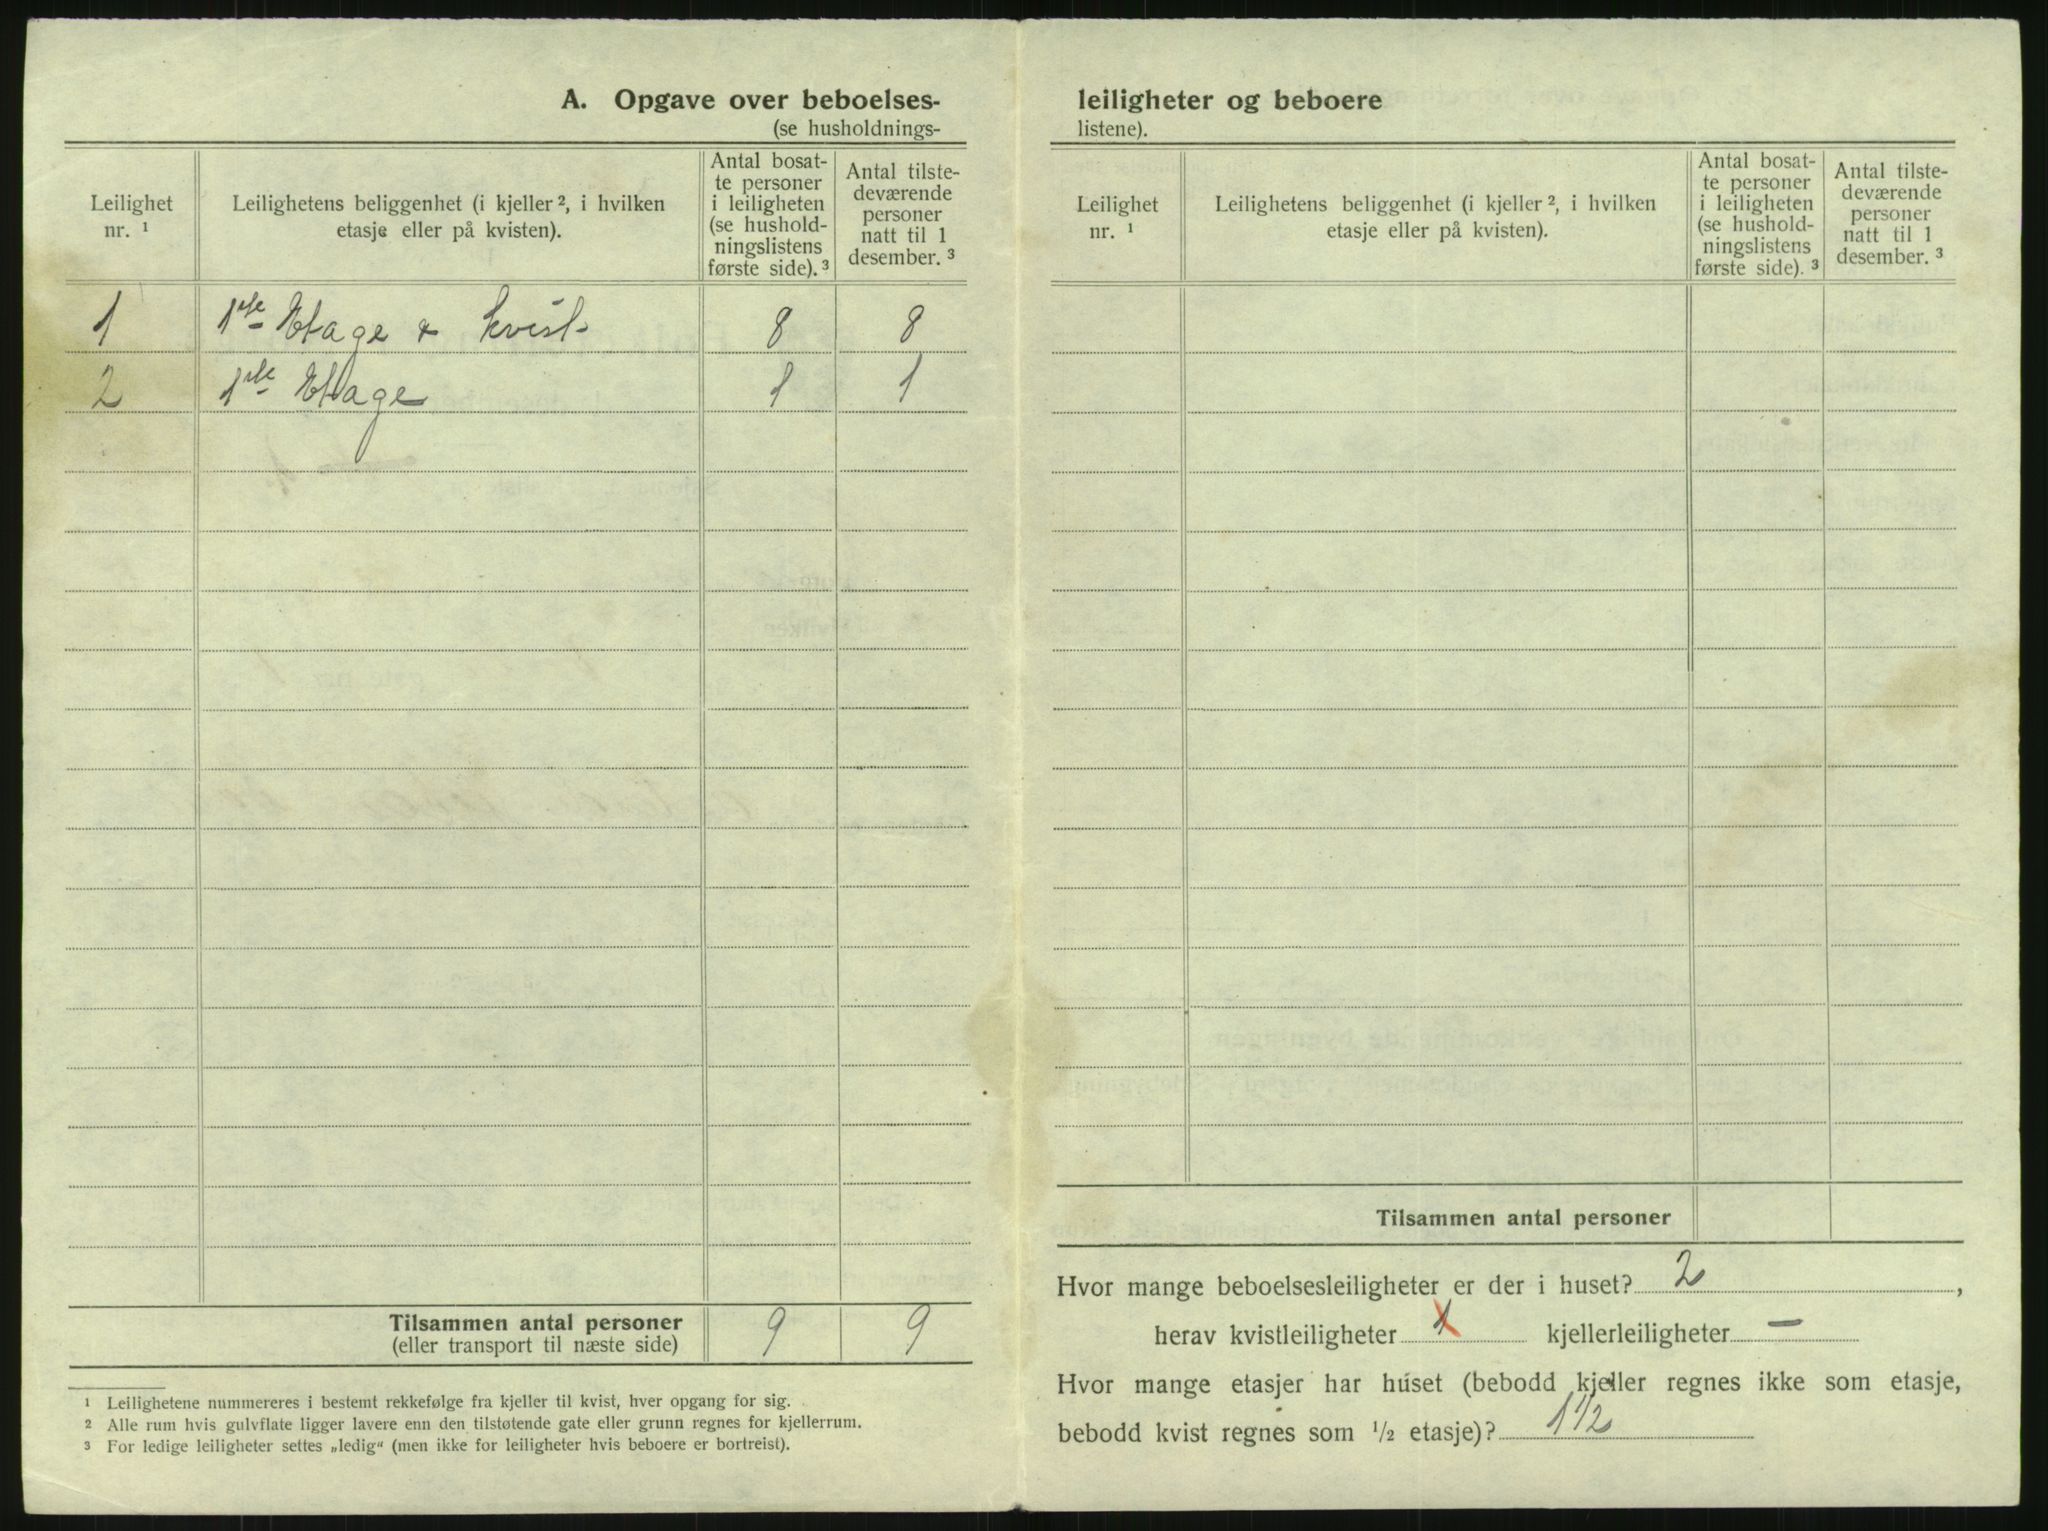 A. Opgave over beboelses-
(se husholdnings-
Leilighet nr. ¹
Leilighetens beliggenhet (i kjeller ², i hvilken etasje eller på kvisten).
Antal bosat-
te personer
i leiligheten
(se hushold-
ningslistens
første side). ³
Antal tilste-
deværende
personer
natt til 1
desember. ³
1 1ste Etage & kvist 8 8
2 1ste Etage 1 1
Tilsammen antal personer 9 9
(eller transport til næste side)
¹ Leilighetene nummereres i bestemt rekkefølge fra kjeller til kvist, hver opgang for sig.
² Alle rum hvis gulvflate ligger lavere enn den tilstøtende gate eller grunn regnes for kjellerrum.
³ For ledige leiligheter settes „ledig“ (men ikke for leiligheter hvis beboere er bortreist).
leiligheter og beboere
listene).
Leilighet nr. ¹
Leilighetens beliggenhet (i kjeller ², i hvilken etasje eller på kvisten).
Antal bosat-
te personer
i leiligheten
(se hushold-
ningslistens
første side). ³
Antal tilste-
deværende
personer
natt til 1
desember. ³
Tilsammen antal personer
Hvor mange beboelsesleiligheter er der i huset? 2 ,
herav kvistleiligheter 1 kjellerleiligheter —
Hvor mange etasjer har huset (bebodd kjeller regnes ikke som etasje,
bebodd kvist regnes som ½ etasje)? 1 1/2